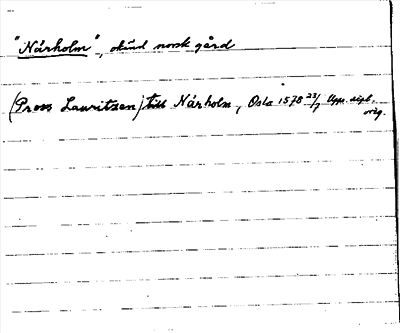 "Nårholm", okänd norsk gård
(Pross Lauritzen) till Nårholm, Oslo 1578 23/7 Upps. dipl.
orig.